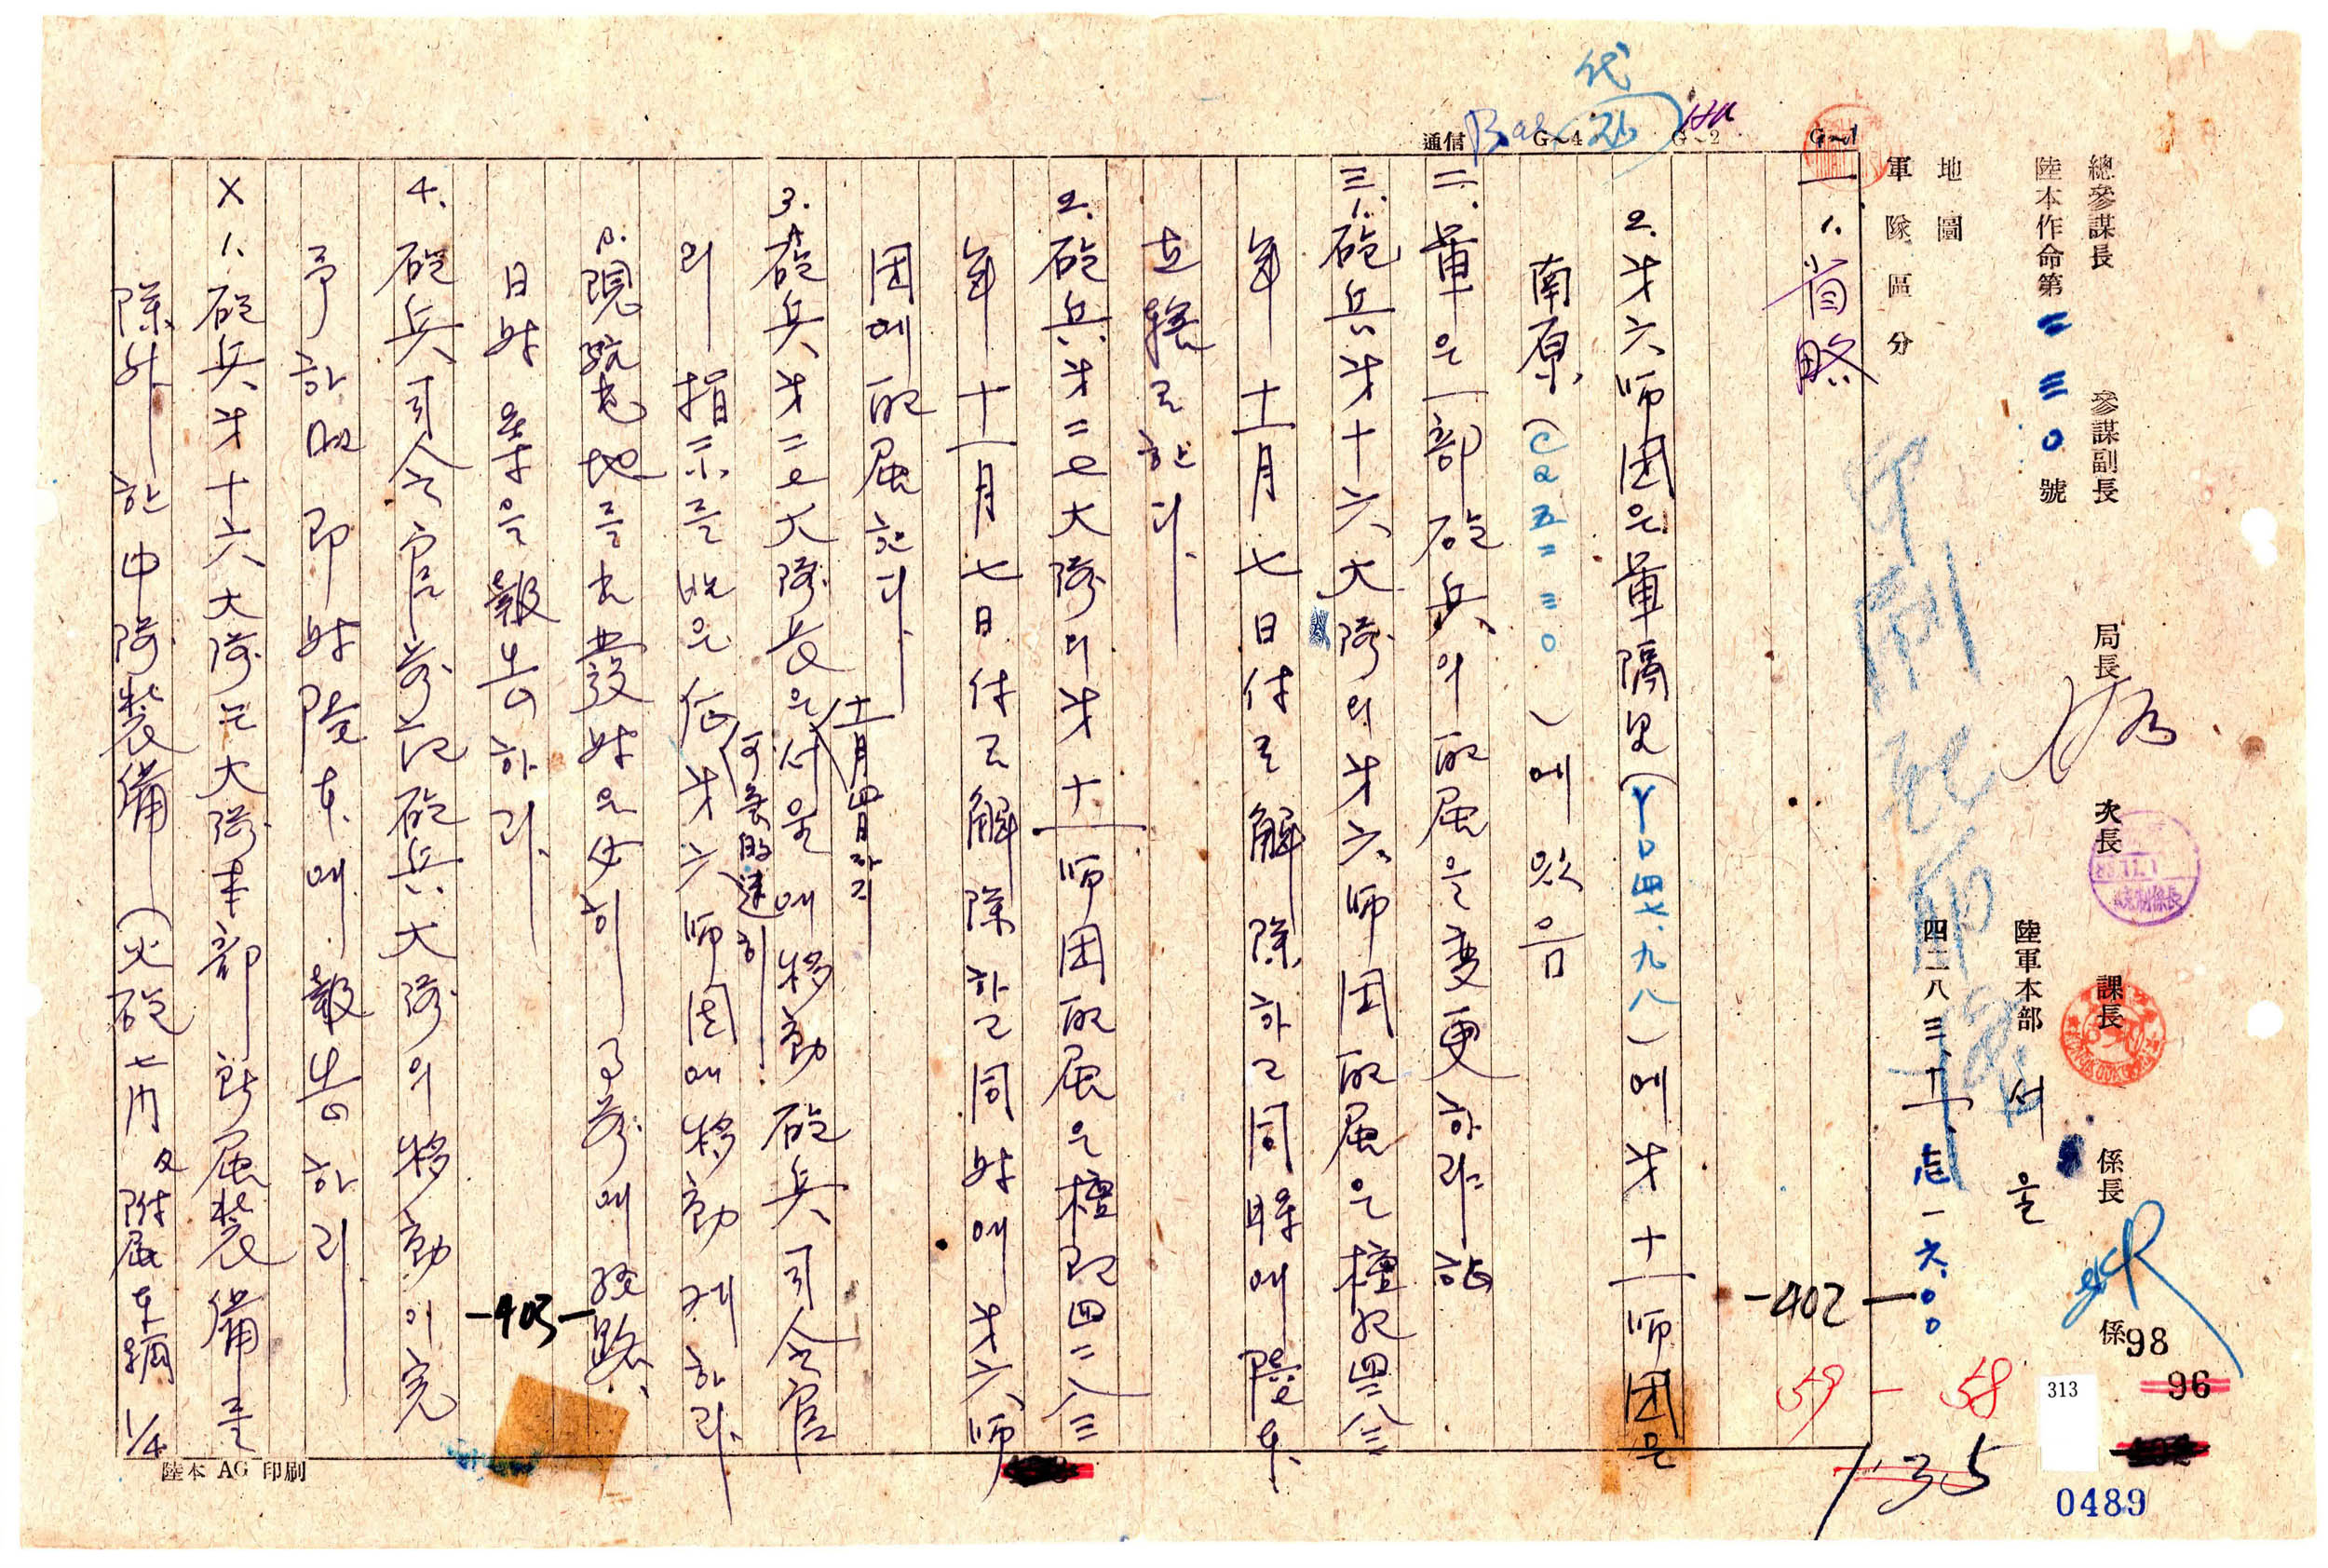 總參謀長 參謀副長 局長 次長 課長 係長 係
陸本作命第二三○號
陸軍本部 서울
地圖
四二八三、十一、 一六、○○
軍隊區分
印刷配布
通信 G~4 G~2 G~1
代
一 1. 省略
2. 才六師団은 軍隅里(YD四七、九八)에 才十一師団은
南原(CQ五二三○)에 있음
二. 軍은 一部 砲兵의 配屬을 変更하랴 함
三. 1. 砲兵 才十六大隊의 才六師団 配属은 檀紀四二八三
年 十一月 七日付로 解除하고 同時에 陸本
直轄로 함
2. 砲兵 才二七大隊의 才十一師団 配属은 檀紀四二八三
年 十一月 七日付로 解除하고 同時에 才六師
団에 配属함
十一月 四日까지
3. A. 砲兵 才二七大隊長은 서울에 移動 砲兵司令官
可及的 速히
의 指示를 받은 后 才六師団에 移動케 하라.
B. 現駐屯地를 出發時은 分히 事前에 経路、
日時 等을 報告하라.
4. 砲兵司令官 前記 砲兵大隊의 移動이 完
了하면 即時 陸本에 報告하라
X 1. 砲兵 才十六大隊은 大隊本部 所属装備를
除外한 中隊装備(火砲七門 及 附属車輛 1/4
-402-
-403-
59 - 58
135
98
96
313
0489
陸本 AG 印刷